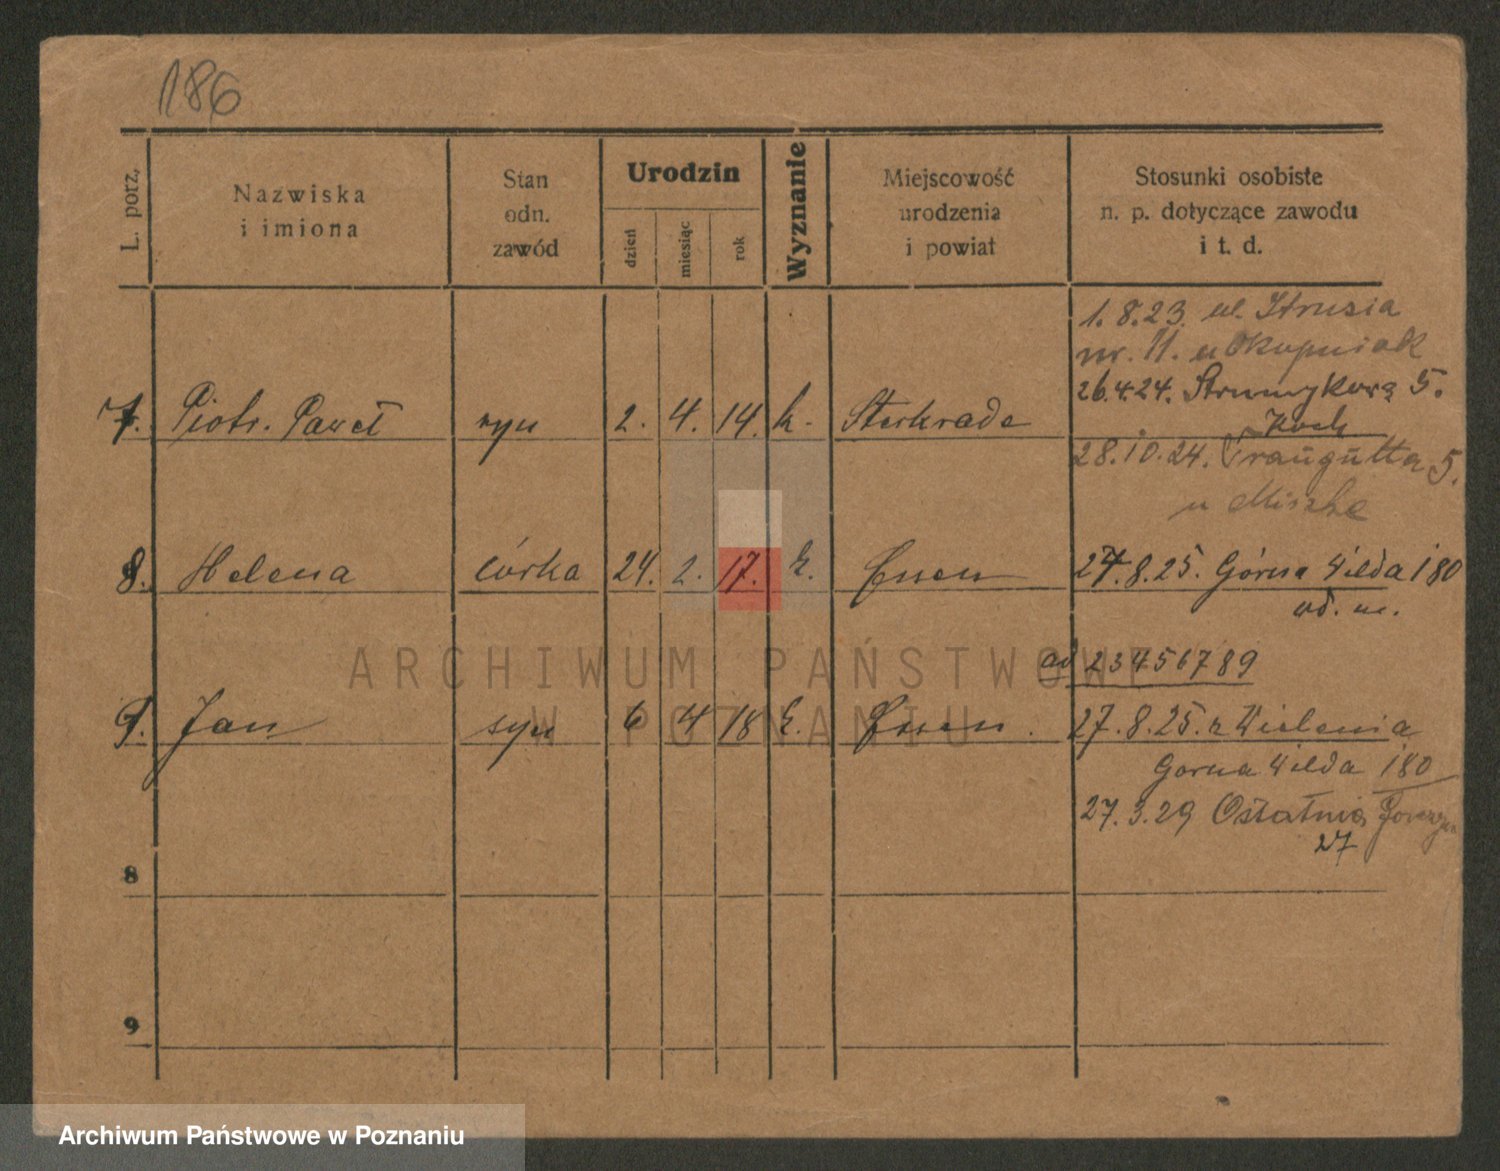 186
L. porz,
Nazwiska
i imiona
Stan
odn.
zawód
Urodzin
dzień
miesiąc
rok
Wyznanie
Miejscowość
urodzenia
i powiat
Stosunki osobiste
n. p. dotyczące zawodu
i t. d.
1.8.23. ul. Strusia
nr. 11. u Okupniak
26.4.24. Strumykową 5.
Koch
7. Piotr. Paweł syn 2. 4. 14. k. Sterkrade
28.10.24. Traugutta 5.
u Miszke
8. Helena córka 24. 2. 17. k. Essen 27.8.25. Górna Wilda 180
od. m.
ad 23456789
9. Jan syn 6 4 18 k. Essen. 27.8.25. z Wielenia
Gorna Wilda 180
27.3.29 Ostatnia
27
8
9
ARCHIWUM PAŃSTWOWE
W POZNANIU
Archiwum Państwowe w Poznaniu